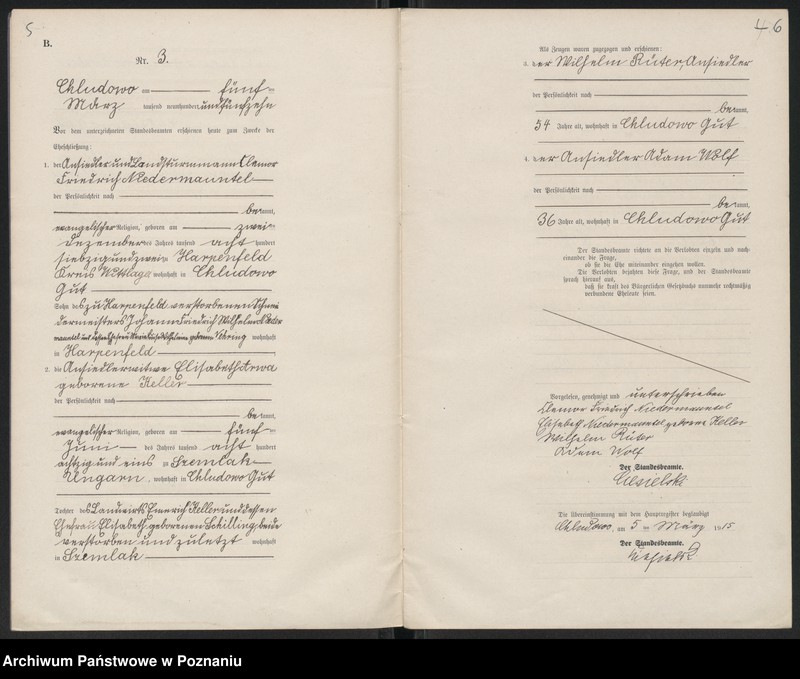 5
B.
Nr. 3.
Chludowo am fünf-ten
März tausend neunhundertundfünfzehn
Vor dem unterzeichneten Standesbeamten erschienen heute zum Zwecke der
Eheschließung:
1. der Ansiedler und Landsturmmann Clemor
Friedrich Niedermanntel
der Persönlichkeit nach
bekannt,
evangelischer Religion, geboren am zwei-ten
Dezember des Jahres tausend acht hundert
siebzigundzwei zu Harpenfeld
Kreis Wittlage, wohnhaft in Chludowo
Gut
Sohn des zu Harpenfeld verstorbenen Schnei
dermeisters Johann Friedrich Wilhelm Nieder
manntel und dessen Ehefrau geborenen wohnhaft
in Harpenfeld
2. die Ansiedlerwitwe Elisabeth
geborene Keller
der Persönlichkeit nach
bekannt,
evangelischer Religion, geboren am fünf-ten
Juni des Jahres tausend acht hundert
achtzig und eins zu Szemlak
Ungarn, wohnhaft in Chludowo Gut
Tochter des Landwirts Emerich Keller und dessen
Ehefrau Elisabeth geborenen Schilling beide
verstorben und zuletzt wohnhaft
in Szemlak
46
Als Zeugen waren zugezogen und erschienen:
3. der Wilhelm Rüter, Ansiedler
der Persönlichkeit nach
bekannt,
54 Jahre alt, wohnhaft in Chludowo Gut
4. der Ansiedler Adam Wolf
der Persönlichkeit nach
bekannt,
36 Jahre alt, wohnhaft in Chludowo Gut
Der Standesbeamte richtete an die Verlobten einzeln und nach-
einander die Frage,
ob sie die Ehe miteinander eingehen wollen.
Die Verlobten bejahten diese Frage, und der Standesbeamte
sprach hierauf aus,
daß sie kraft des Bürgerlichen Gesetzbuchs nunmehr rechtmäßig
verbundene Eheleute seien.
Vorgelesen, genehmigt und unterschrieben
Clemor Friedrich Niedermanntel
Elisabeth Niedermanntel geborene Keller
Wilhelm Rüter
Adam Wolf
Der Standesbeamte.
Ciesielski
Die Übereinstimmung mit dem Hauptregister beglaubigt
Chludowo, am 5 ten März 1915
Der Standesbeamte.
Ciesielski
Archiwum Państwowe w Poznaniu